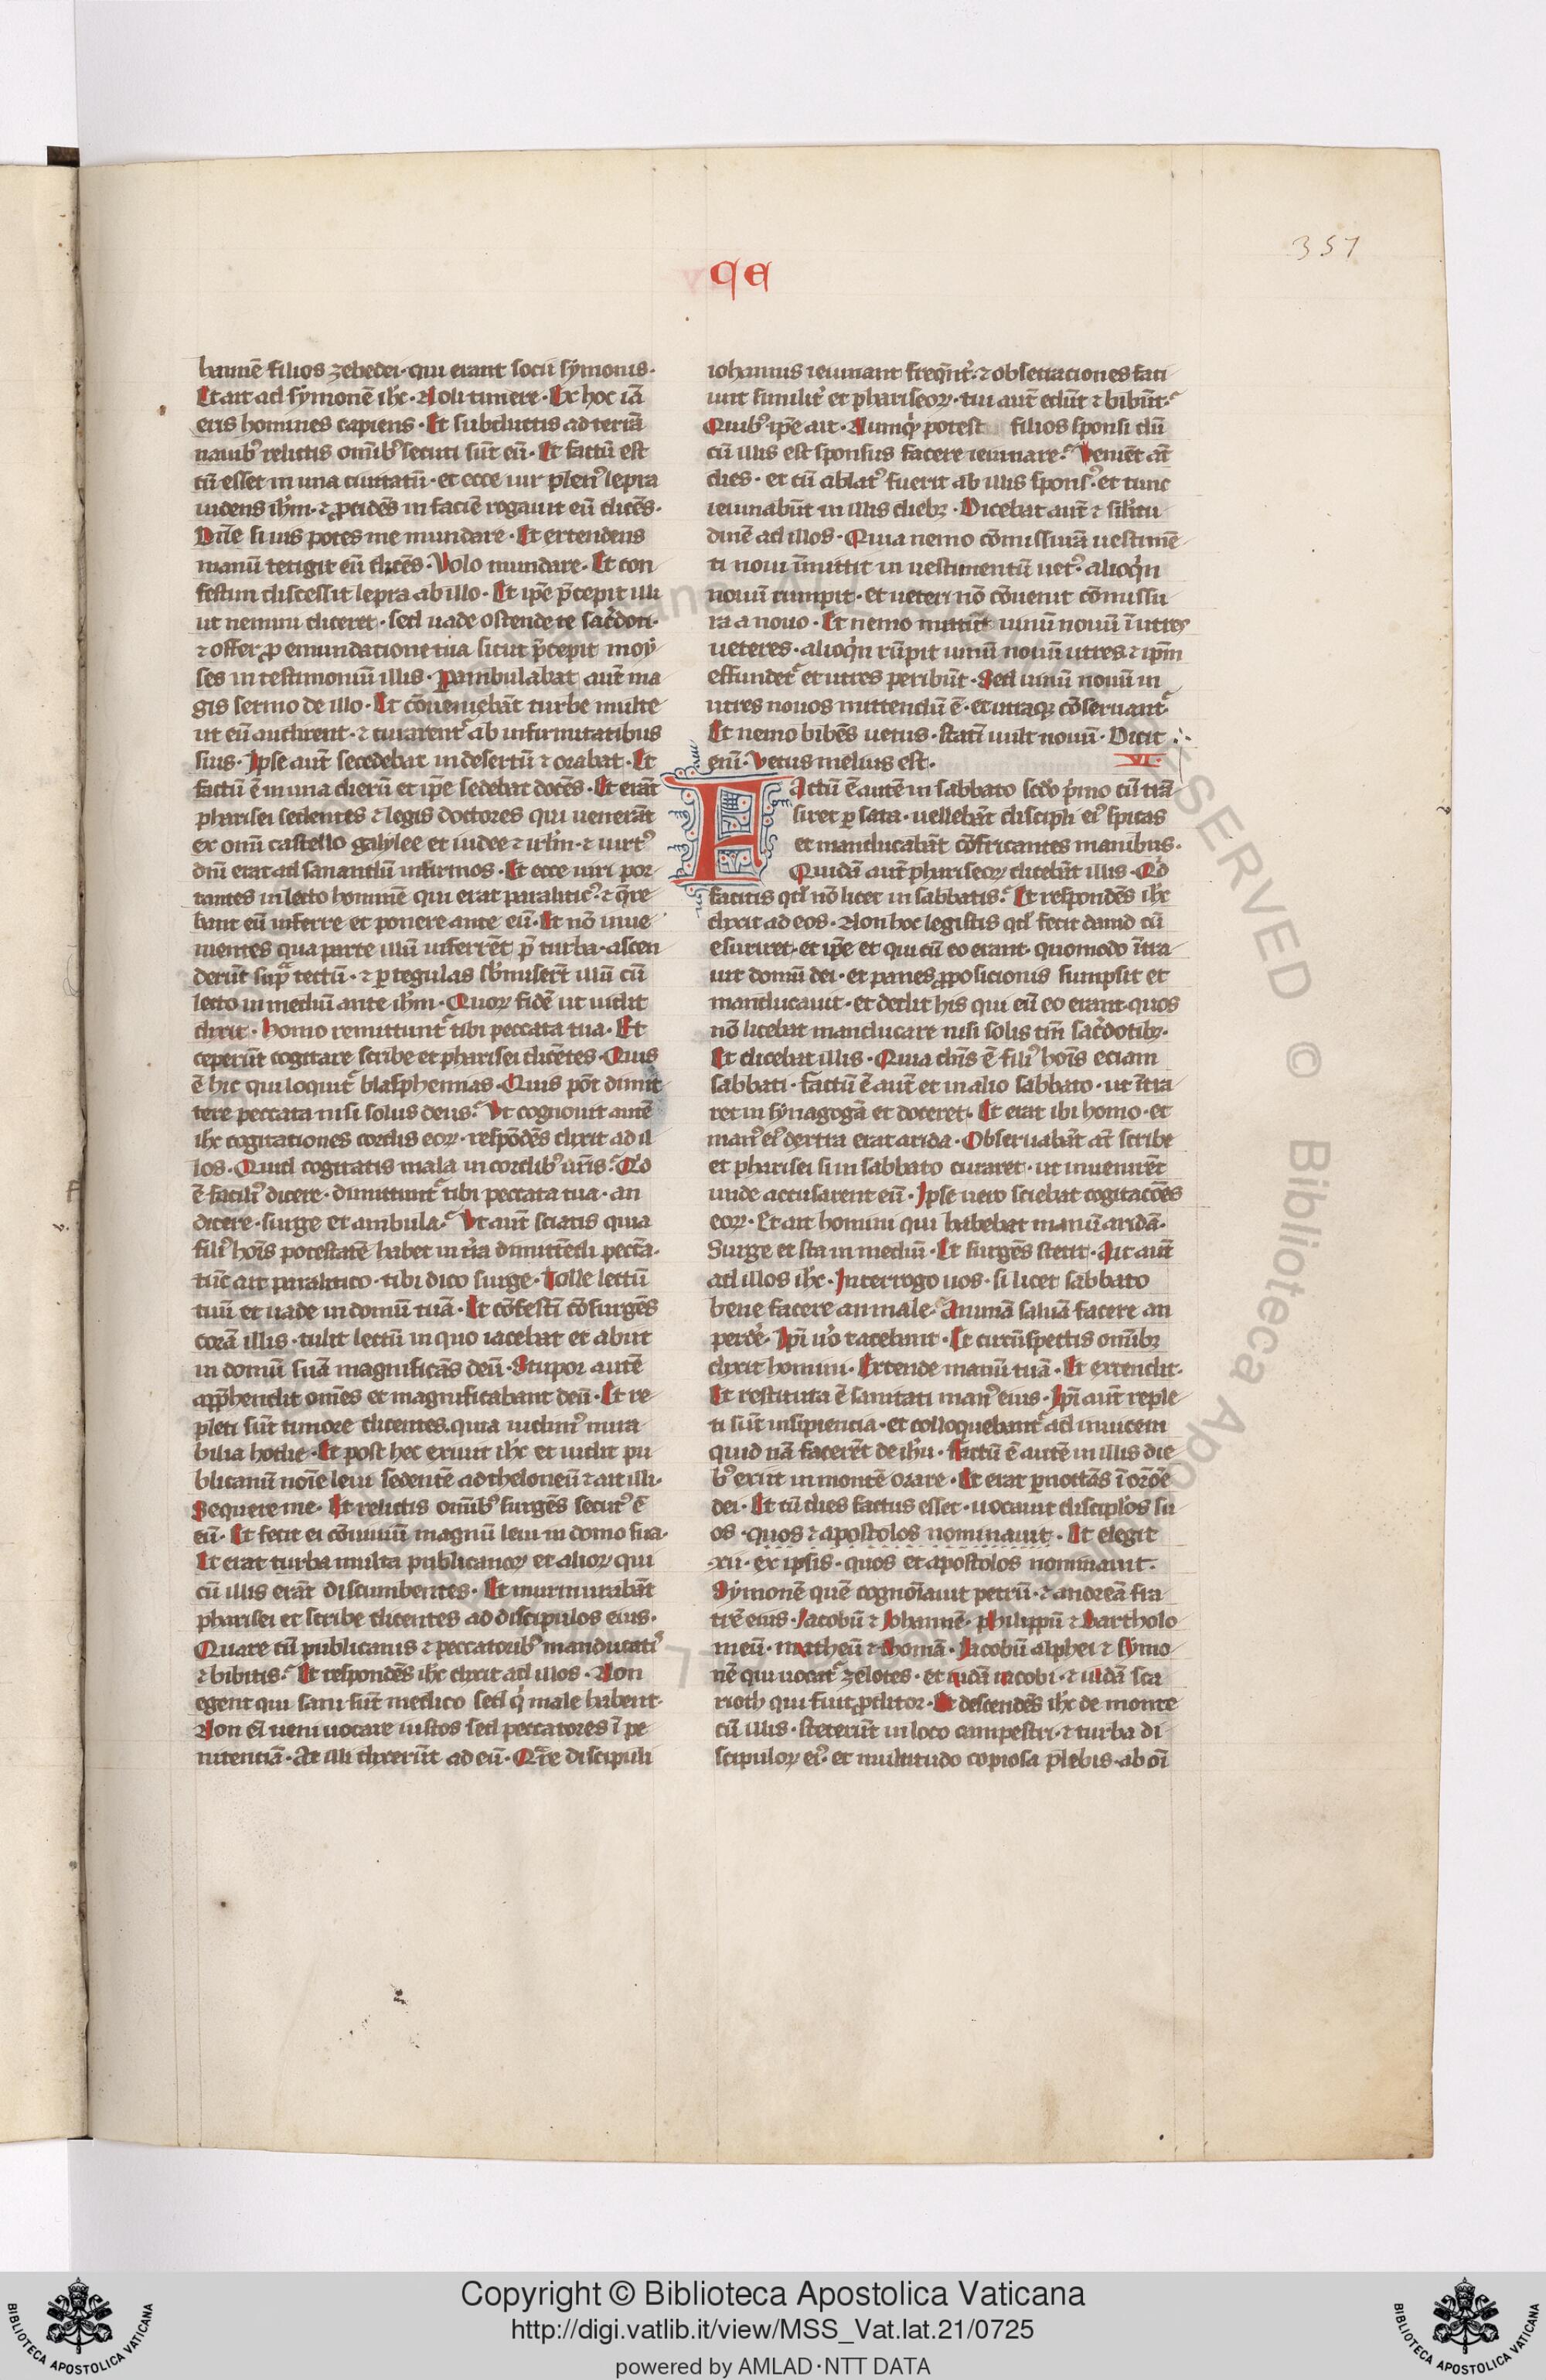 351
CA
hannē filios zebedei · qui erant socii symonis ·
Et ait ad symonē ihc · Noli timere · Ex hoc iā
eris homines capiens · Et subductis ad terrā
nauibꝰ relictis omībꝰ secuti sūt eū · Et factū est
cū esset in una ciuitatū · et ecce uir plenꝰ lepra
uidens ihm · ⁊ ꝓcidēs in faciē rogauit eū dicēs ·
Dn̄e si uis potes me mundare · Et extendens
manū tetigit eū dicēs · Volo mundare · Et con
festim discessit lepra ab illo · Et ip̄e p̄cepit illi
ut nemini diceret · sed uade ostende te sac̓doti ·
⁊ offer ꝓ emundatione tua sicut p̄cepit moy
ses in testimoniū illis · Pambulabat aut̄ ma
gis sermo de illo · Et cōueniebāt turbe multe
ut eū audirent · ⁊ curarent᷑ ab infirmitatibus
suis · Ipse aut̄ secedebat in desertū ⁊ orabat · Et
factū ē in una dierū et ip̄e sedebat docēs · Et erāt
pharisei sedentes ⁊ legis doctores qui uenerāt
ex omī castello galylee et iudee ⁊ irl̄m · ⁊ uirtꝰ
dn̄i erat ad sanandū infirmos · Et ecce uiri por
tantes in lecto hominē qui erat paraliticꝰ · ⁊ q̄re
bant eū inferre et ponere ante eū · Et nō inue
nientes qua parte illū inferrēt p̄ turba · ascen
derūt supᷓ tectū · ⁊ ꝑ tegulas sb̓miserūt illū cū
lecto in mediū ante ihm · Quoꝝ fidē ut uidit
dixit · Homo remittunt᷑ tibi peccata tua · Et
ceperūt cogitare scribe et pharisei dicētes · Quis
ē hic qui loquit᷑ blasphemias · Quis pōt dimit
tere peccata nisi solus deus · Vt cognouit autē
ihc cogitationes cordis eoꝝ · respōdēs dixit ad il
los · Quid cogitatis mala in cordibꝰ ur̄is · Qͥd
ē faciliꝰ dicere · dimittunt᷑ tibi peccata tua · an
dicere · surge et ambula · Vt aut̄ sciatis quia
filiꝰ hoīs potestatē habet in tr̄a dimittēdi pecc̄a ·
tūc ait paralitico · tibi dico surge · Tolle lectū
tuū et uade in domū tuā · Et cōfestī cōsurgēs
corā illis · tulit lectū in quo iacebat et abiit
in domū suā magnificās deū · Stupor autē
app̄hendit om̄es et magnificabant deū · Et re
pleti sūt timore dicentes · quia uidimꝰ mira
bilia hodie · Et post hec exiuit ihc et uidit pu
blicanū noīe leui sedentē ad theloneū ⁊ ait illi ·
Sequere me · Et relictis omībꝰ surgēs secutꝰ ē
eū · Et fecit ei cōuiuiū magnū leui in domo sua ·
Et erat turba multa publicanoꝝ et alioꝝ qui
cū illis erāt discumbentes · Et murmurabāt
pharisei et scribe dicentes ad discipulos eius ·
Quare cū publicanis ⁊ peccatoribꝰ manducatiꝰ
⁊ bibitis · Et respondēs ihc dixit ad illos · Non
egent qui sani sūt medico sed qͥ male habent ·
Non em̄ ueni uocare iustos sed peccatores ī pe
nitentiā · At illi dixerūt ad eū · Qᷓre discipuli
iohannis ieiunant freqn̄t᷑ · ⁊ obseruaciones faci
unt similit᷑ et phariseoꝝ · tui aut̄ edūt ⁊ bibūt ·
Quibꝰ ip̄e ait · Numqͥd potest filios sponsi dū
cū illis est sponsus facere ieiunare · Venient āt
dies · et cū ablatꝰ fuerit ab illis sponsꝰ · et tunc
ieiunabūt in illis diebꝫ · Dicebat aut̄ ⁊ sil̓itu
dinē ad illos · Quia nemo cōmissurā uestimē
ti noui īmittit in uestimentū uetꝰ · alioqͥn
nouū rumpit · et ueteri nō cōuenit cōmissu
ra a nouo · Et nemo mittit uinū nouū ī utres
ueteres · alioqͥn rūpit uinū nouū utres ⁊ ip̄m
effundet᷑ et utres peribūt · Sed uinū nouū in
utres nouos mittendū ē · et utraqꝫ cōseruant᷑
Et nemo bibēs uetus · statī uult nouū · Dicit
enī · Vetus melius est · VI
Factū ē autē in sabbato scd̄o pͥmo cū trā
siret ꝑ sata · uellebāt discipli eiꝰ spicas
et manducabāt cōfricantes manibus ·
Quidā aut̄ phariseoꝝ dicebāt illis · Qͥd
facitis qd̄ nō licet in sabbatis · Et respondēs ihc
dixit ad eos · Non hoc legistis qd̄ fecit dauid cū
esuriret · et ip̄e et qui cū eo erant · quomodo ītra
uit domū dei · et panes ꝓposicionis sumpsit et
manducauit · et dedit his qui cū eo erant · quos
nō licebat manducare nisi solis tm̄ sac̓dotibꝫ ·
Et dicebat illis · Quia dn̄s ē filiꝰ hoīs eciam
sabbati · factū ē aut̄ et in alio sabbato · ut ītra
ret in synagogā et doceret · Et erat ibi homo · et
manꝰ eiꝰ dextra erat arida · Obseruabāt āt scribe
et pharisei si in sabbato curaret · ut inuenirēt
unde accusarent eū · Ipse uero sciebat cogitacōēs
eoꝝ · Et ait homini qui habebat manū aridā ·
Surge et sta in mediū · Et surgēs stetit · Ait aut̄
ad illos ihc · Interrogo uos · si licet sabbato
bene facere an male · Animā saluā facere an
perdē · Ip̄i uͦo tacebant · Et circūspectis omībꝫ
dixit homini · Extende manū tuā · Et extendit ·
Et restituta ē sanitati manꝰ eius · Ip̄i aut̄ reple
ti sūt insipiencia · et colloquebant᷑ ad inuicem
quid nā facerēt de ihu · Factū ē autē in illis die
bꝰ exiit in montē orare · Et erat ꝑnoctās ī or̄oē
dei · Et cū dies factus esset · uocauit discip̄los su
os · quos ⁊ apostolos nominauit · Et elegit
xii · ex ipsis · quos et apostolos nominauit ·
Symonē quē cognoīauit petrū · ⁊ andreā fra
trē eius · Iacobū ⁊ Iohannē · philippū ⁊ bartholo
meū · matheū ⁊ thomā · Iacobū alphei ⁊ symo
nē qui uocat᷑ zelotes · et iudā iacobi · ⁊ iudā sca
rioth qui fuit ꝓditor · Et descendēs ihc de monte
cū illis · steterūt in loco campestri · ⁊ turba di
scipuloꝝ eiꝰ · et multitudo copiosa plebis · ab oī
RESERVED © Biblioteca Apo
Copyright © Biblioteca Apostolica Vaticana
http://digi.vatlib.it/view/MSS_Vat.lat.21/0725
powered by AMLAD·NTT DATA
BIBLIOTECA APOSTOLICA VATICANA
BIBLIOTECA APOSTOLICA VATICANA